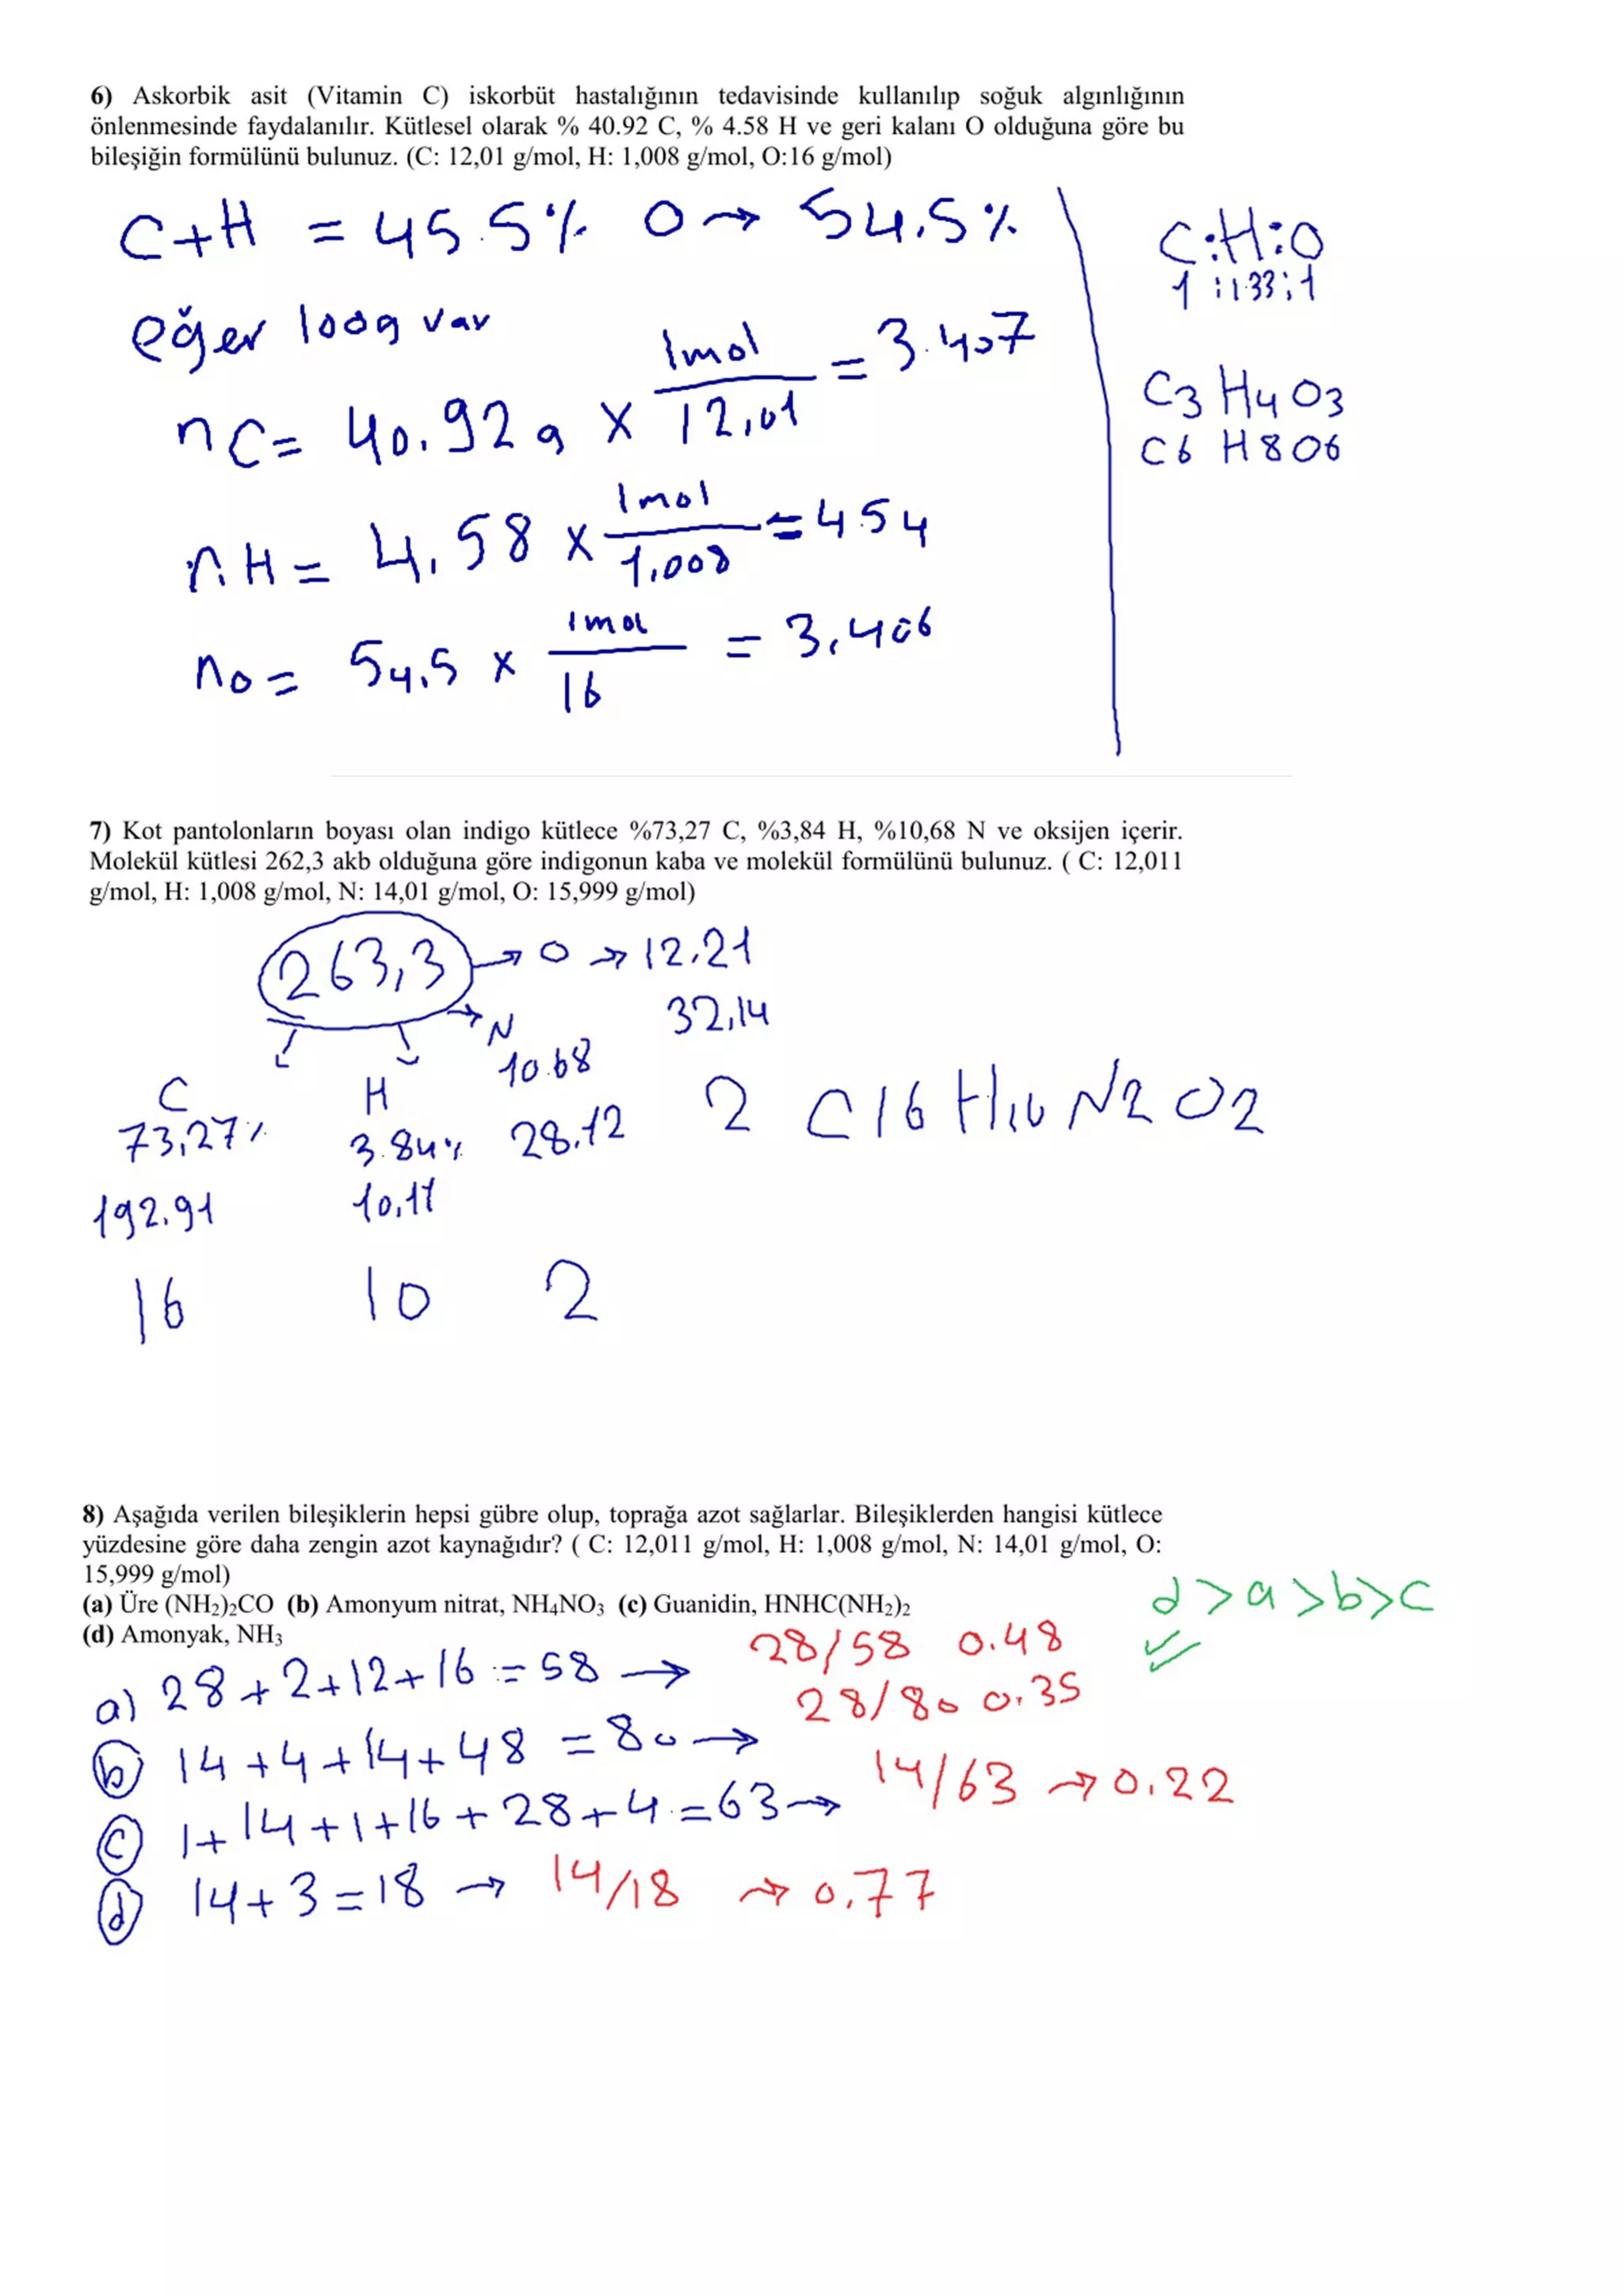 6) Askorbik asit (Vitamin C) iskorbüt hastalığının tedavisinde kullanılıp soğuk algınlığının
önlenmesinde faydalanılır. Kütlesel olarak % 40.92 C, % 4.58 H ve geri kalanı O olduğuna göre bu
bileşiğin formülünü bulunuz. (C: 12,01 g/mol, H: 1,008 g/mol, O:16 g/mol)
C+H = 45.5% O → 54,5%
eğer 100g var
nC = 40,92g x 1mol/12,01 = 3.407
nH = 4,58 x 1mol/1,008 = 4.54
nO = 54,5 x 1mol/16 = 3,406
C:H:O
1:1.33:1
C3H4O3
C6H8O6
7) Kot pantolonların boyası olan indigo kütlece %73,27 C, %3,84 H, %10,68 N ve oksijen içerir.
Molekül kütlesi 262,3 akb olduğuna göre indigonun kaba ve molekül formülünü bulunuz. ( C: 12,011
g/mol, H: 1,008 g/mol, N: 14,01 g/mol, O: 15,999 g/mol)
263,3 → O → 12,21
32,14
N
10.68
C H
73,27% 3.84% 28,12 2 C16H10N2O2
192.91 10,11
16 10 2
8) Aşağıda verilen bileşiklerin hepsi gübre olup, toprağa azot sağlarlar. Bileşiklerden hangisi kütlece
yüzdesine göre daha zengin azot kaynağıdır? ( C: 12,011 g/mol, H: 1,008 g/mol, N: 14,01 g/mol, O:
15,999 g/mol)
(a) Üre (NH2)2CO (b) Amonyum nitrat, NH4NO3 (c) Guanidin, HNHC(NH2)2
(d) Amonyak, NH3
d > a > b > c
a) 28+2+12+16 = 58 → 28/58 0.48
b) 14+4+14+48 = 80 → 28/80 0.35
c) 1+14+1+16+28+4 = 63 → 14/63 → 0.22
d) 14+3 = 18 → 14/18 → 0.77